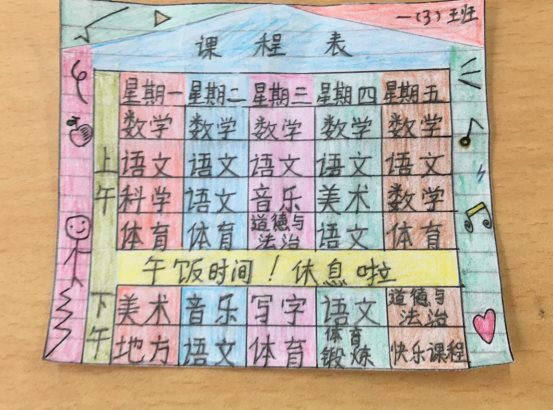 一(3)班
课程表
星期一 星期二 星期三 星期四 星期五
上午
数学 数学 数学 数学 数学
语文 语文 语文 语文 语文
科学 语文 音乐 美术 数学
体育 体育 道德与法治 语文 体育
午饭时间！休息啦
下午
美术 音乐 写字 语文 道德与法治
地方 语文 体育 体育锻炼 快乐课程